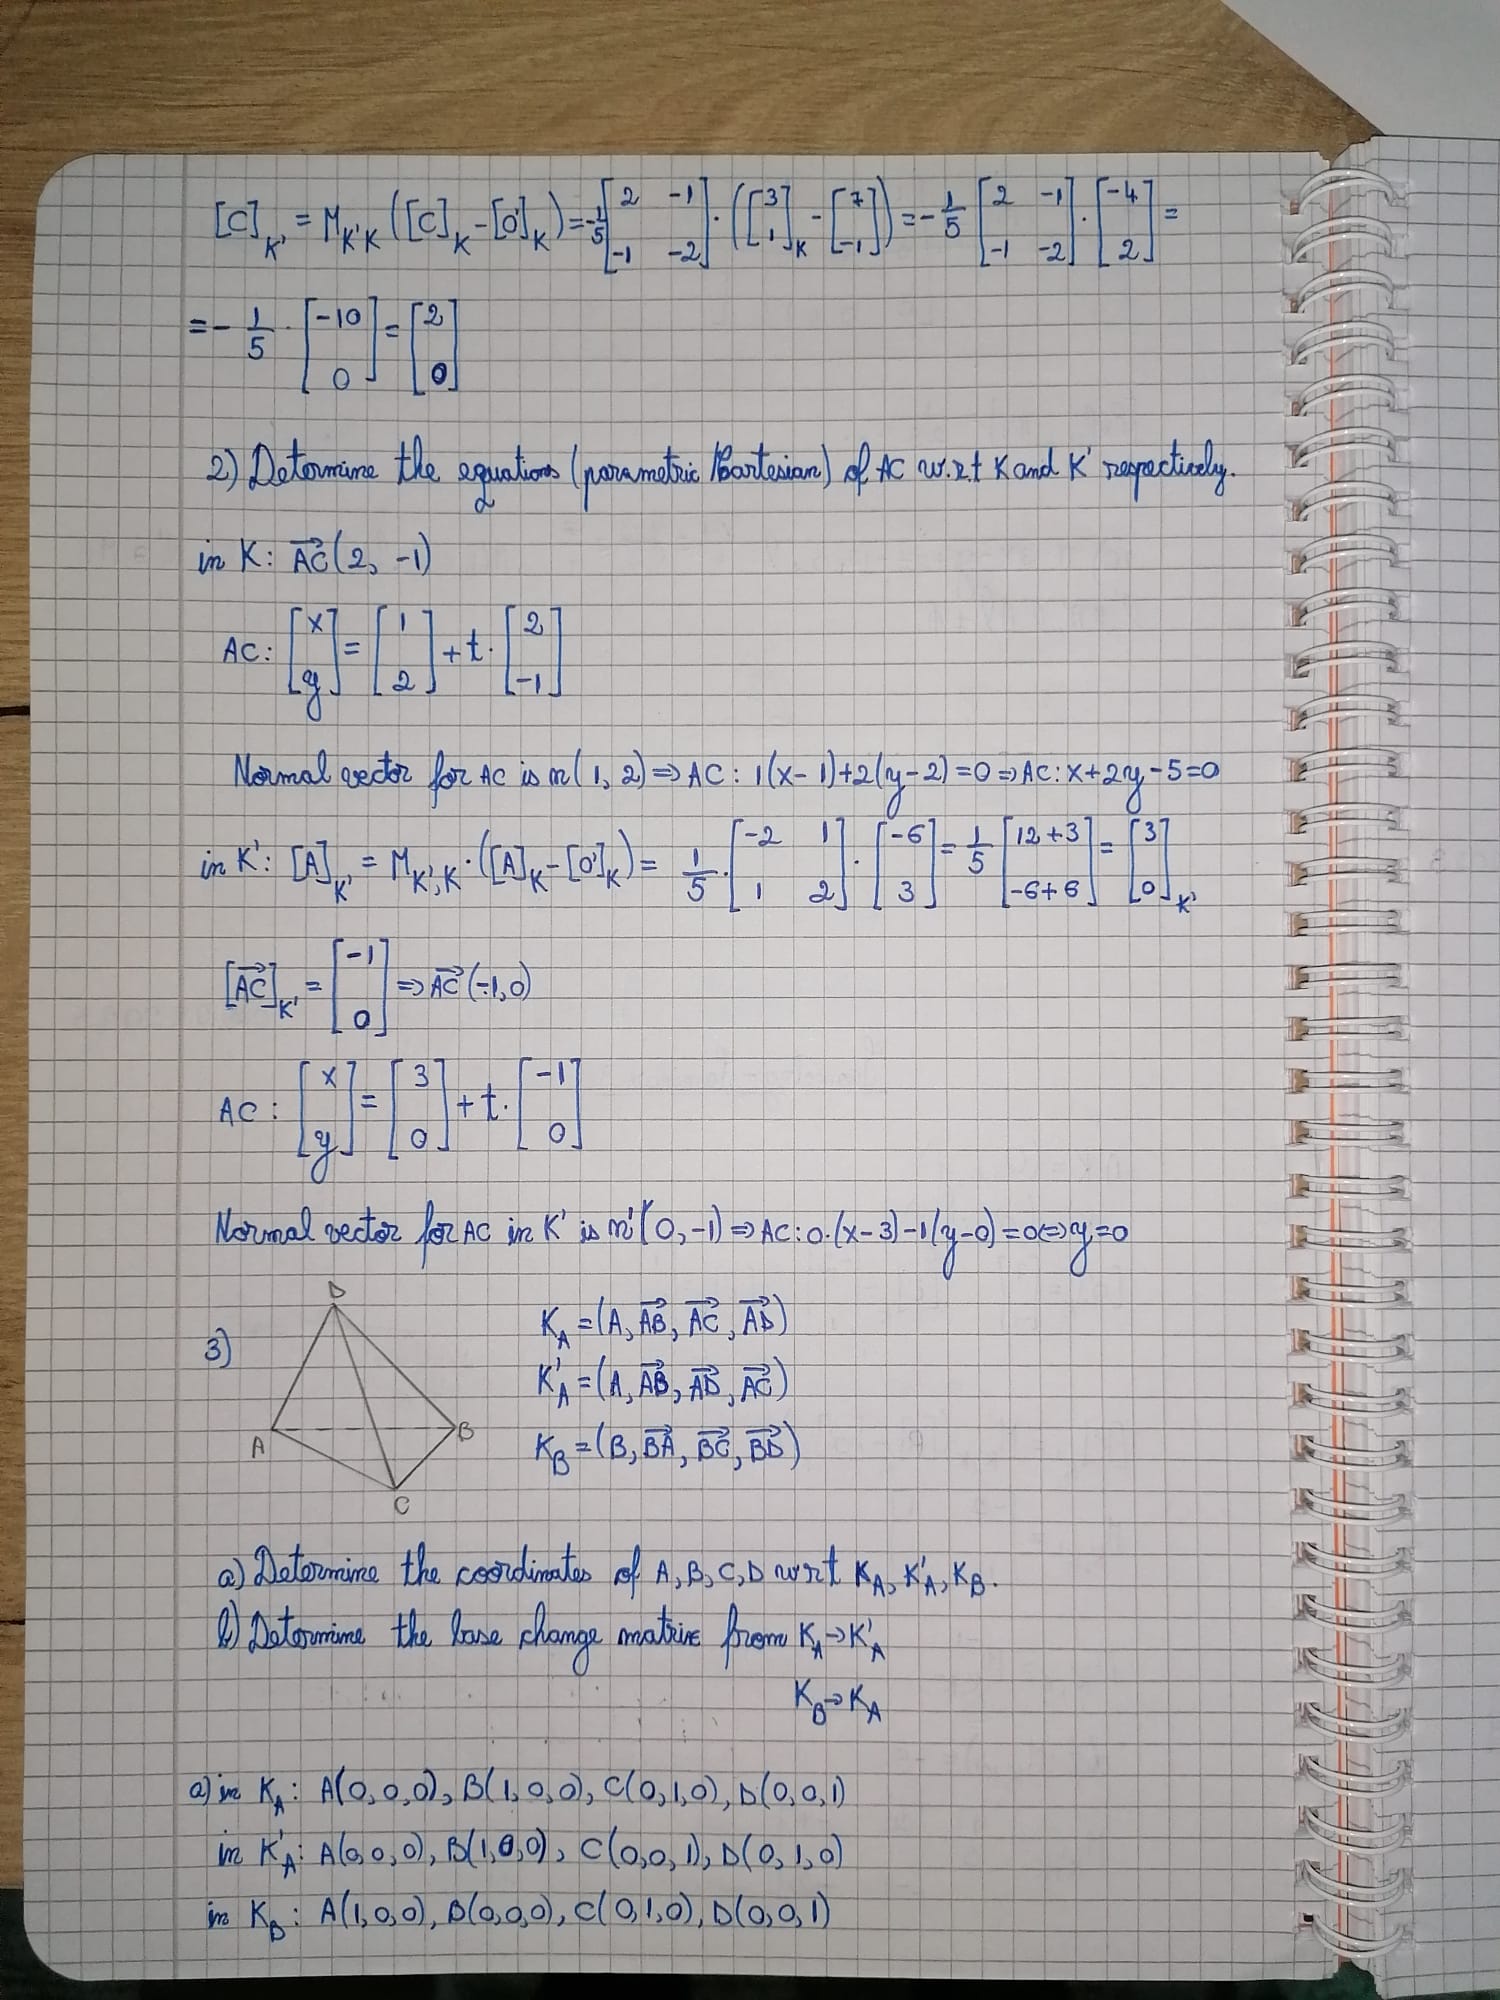 [C]_K' = M_K'K ([C]_K - [O']_K) = -1/5 [2 -1; -1 -2] · ([3; 1]_K - [7; -1]) = -1/5 [2 -1; -1 -2] · [-4; 2] =
= - 1/5 · [-10; 0] = [2; 0]
2) Determine the equations (parametric/Cartesian) of AC w.r.t K and K' respectively.
in K: AC→(2, -1)
AC: [x; y] = [1; 2] + t · [2; -1]
Normal vector for AC is n(1, 2) ⇒ AC: 1(x-1)+2(y-2)=0 ⇒ AC: x+2y-5=0
in K': [A]_K' = M_K',K · ([A]_K - [O']_K) = 1/5 · [-2 1; 1 2] · [-6; 3] = 1/5 [12+3; -6+6] = [3; 0]_K'
[AC→]_K' = [-1; 0] ⇒ AC→(-1, 0)
AC: [x; y] = [3; 0] + t · [-1; 0]
Normal vector for AC in K' is n'(0, -1) ⇒ AC: 0·(x-3)-1(y-0)=0 ⇔ y=0
3)
D
A
B
C
K_A = (A, AB→, AC→, AD→)
K'_A = (A, AB→, AD→, AC→)
K_B = (B, BA→, BC→, BD→)
a) Determine the coordinates of A, B, C, D wrt K_A, K'_A, K_B.
b) Determine the base change matrix from K_A → K'_A
K_B → K_A
a) in K_A: A(0, 0, 0), B(1, 0, 0), C(0, 1, 0), D(0, 0, 1)
in K'_A: A(0, 0, 0), B(1, 0, 0), C(0, 0, 1), D(0, 1, 0)
in K_B: A(1, 0, 0), B(0, 0, 0), C(0, 1, 0), D(0, 0, 1)